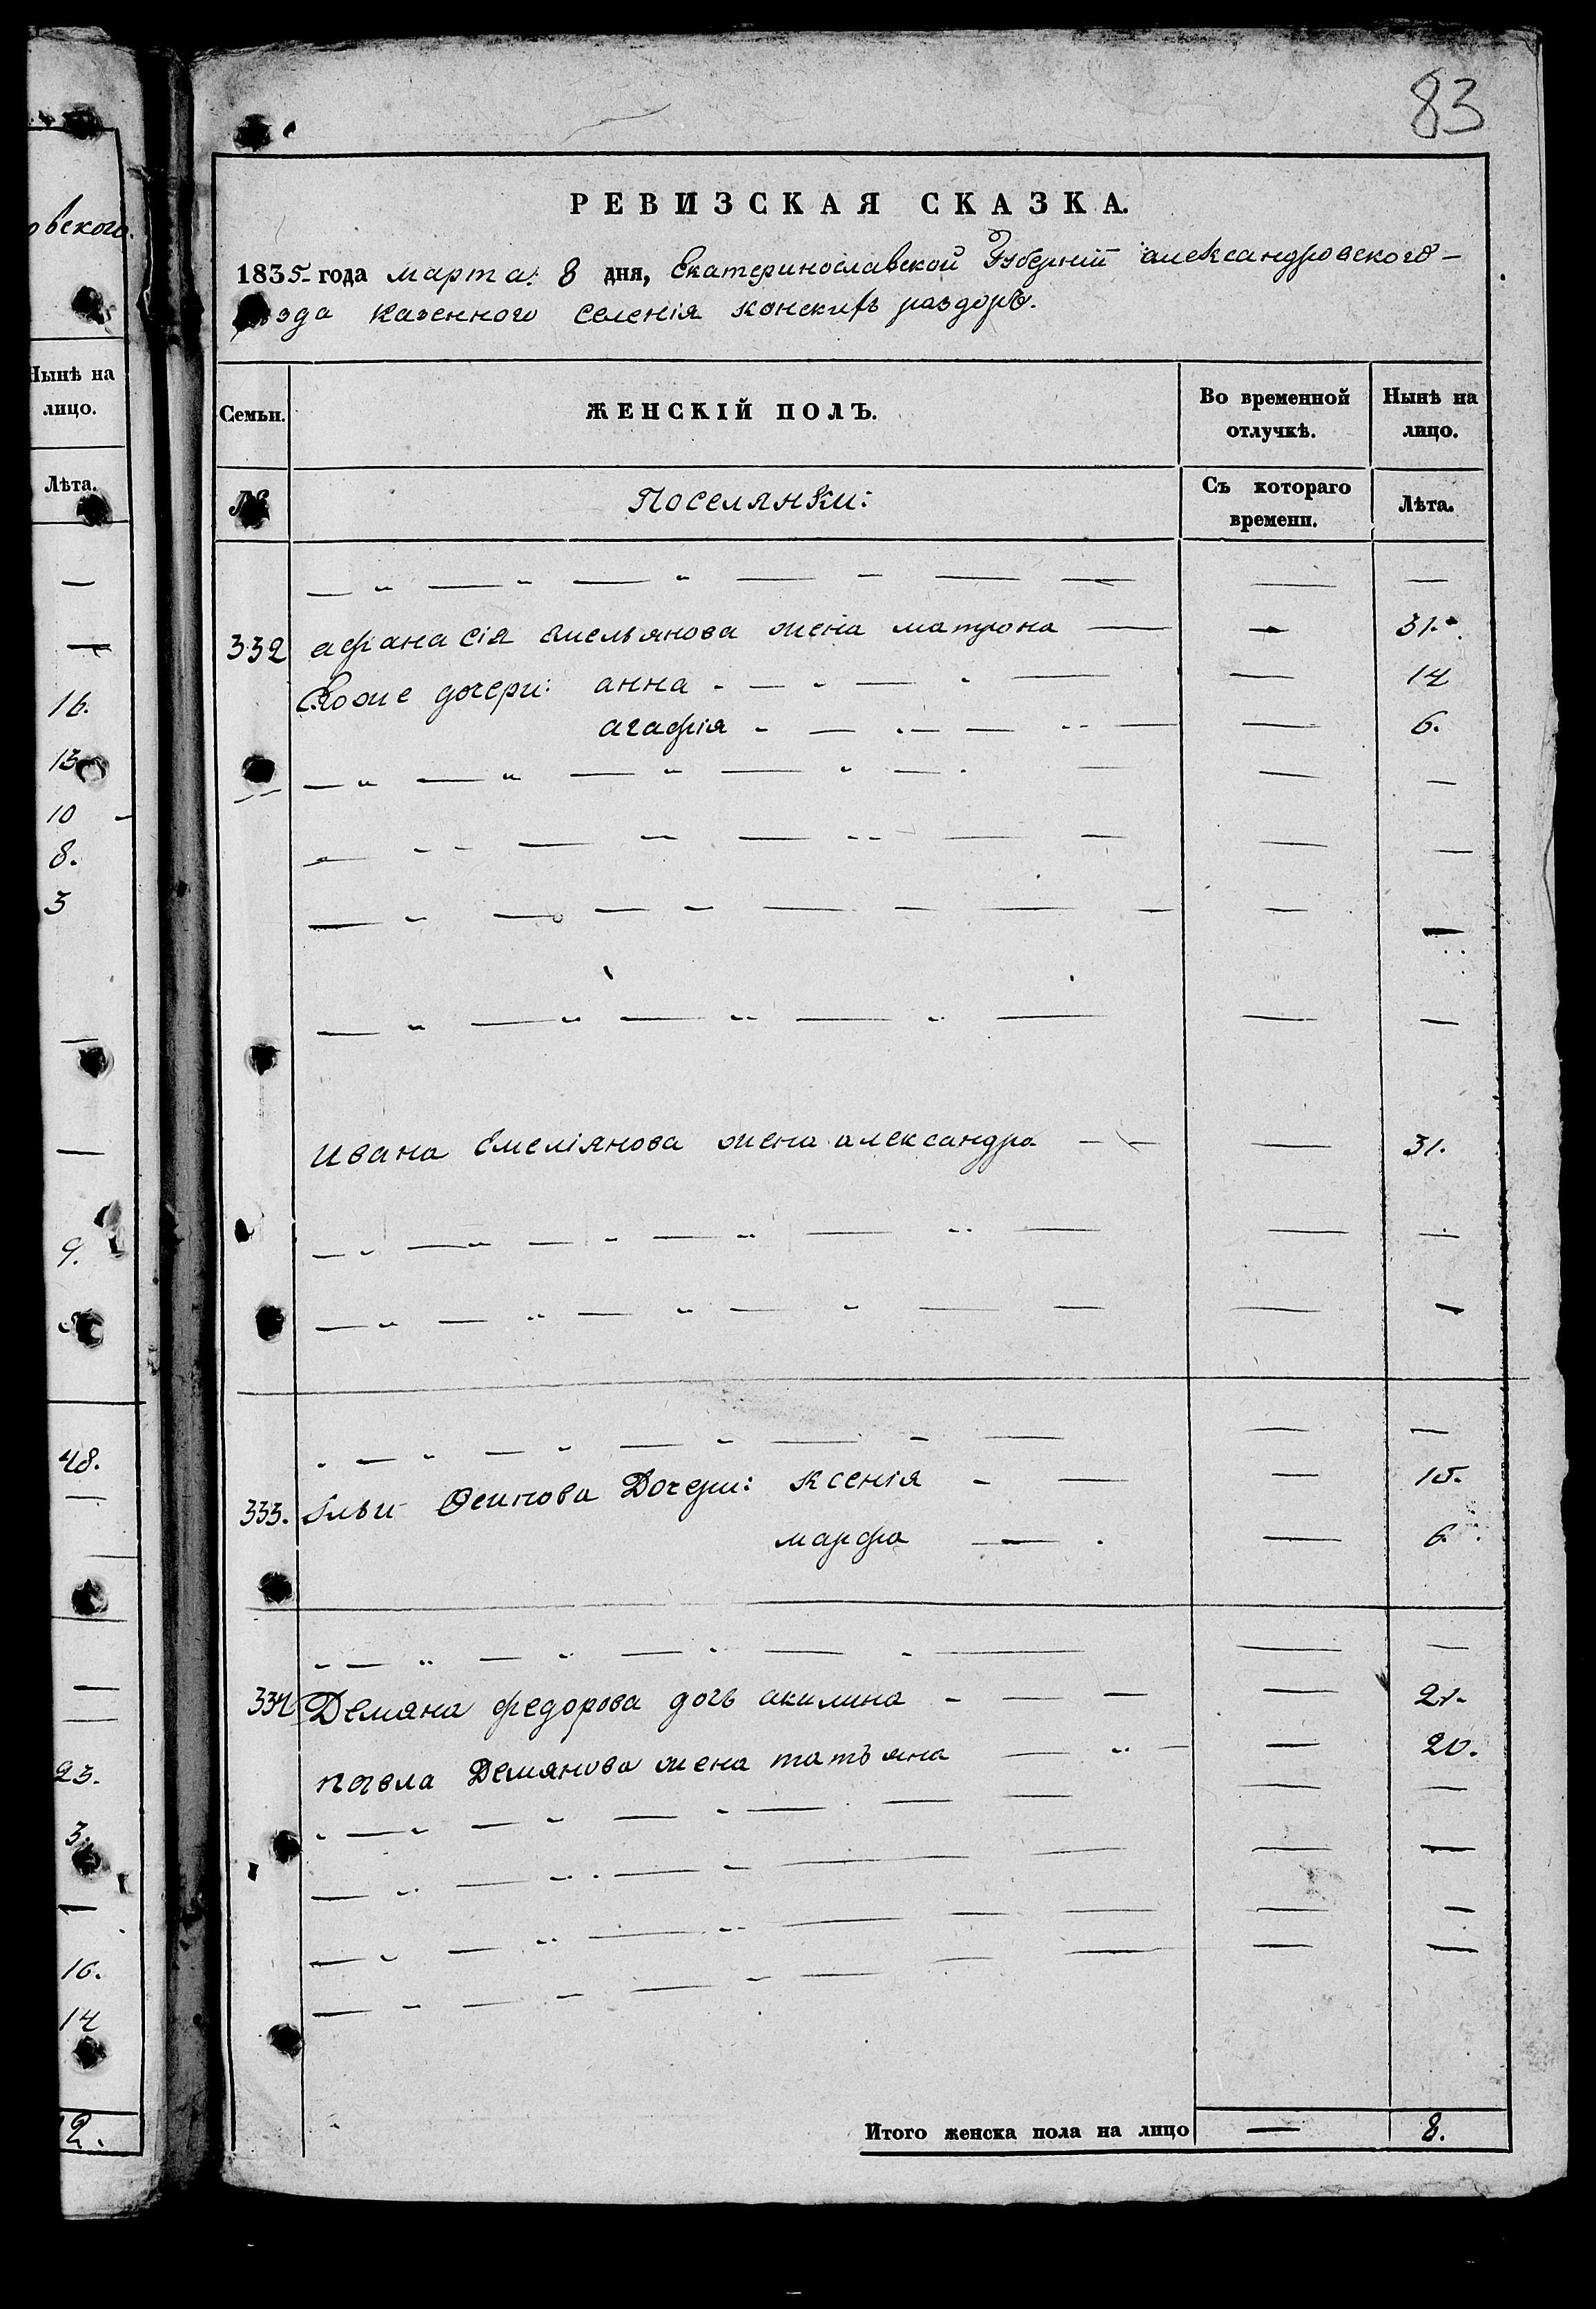 83
овского
Нынѣ на
лицо.
Лѣта.
16.
13
10
8.
3
9.
48.
23.
3.
16.
14
2.
РЕВИЗСКАЯ СКАЗКА.
1835 года марта 8 дня, Екатеринославской Губерніи александровского
уезда казенного селенія конскихъ раздоръ.
Семьи. ЖЕНСКІЙ ПОЛЪ. Во временной отлучкѣ. Нынѣ на лицо.
№ Поселянки: Съ котораго времени. Лѣта.
332 афанасія Емельянова жена матрона — — 31.
Егоже дочери: анна — — 14
агафія — — 6.
ивана Емеліянова жена александра — — 31.
333. Ильи Осипова Дочери: ксенія — — 15.
марфа — — 6.
334 Демяна федорова дочь акилина — — 21.
павла Демянова жена татьяна — — 20.
Итого женска пола на лицо — 8.